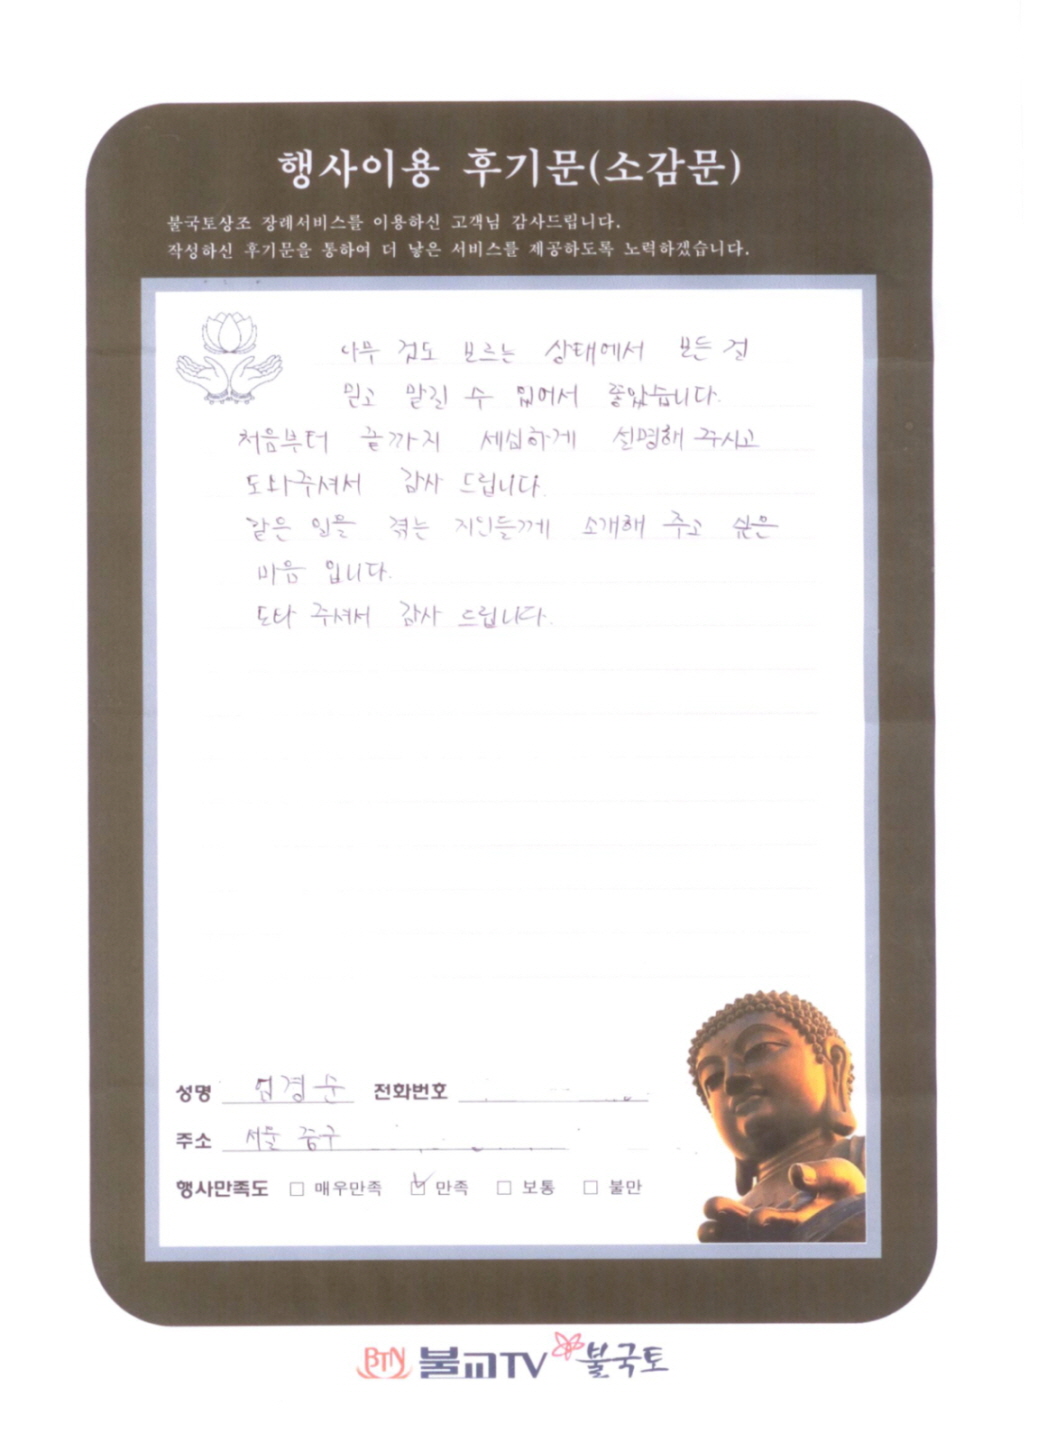 행사이용 후기문(소감문)
불국토상조 장례서비스를 이용하신 고객님 감사드립니다.
작성하신 후기문을 통하여 더 낳은 서비스를 제공하도록 노력하겠습니다.
아무 것도 모르는 상태에서 모든 걸
믿고 맡길 수 있어서 좋았습니다.
처음부터 끝까지 세심하게 설명해 주시고
도와주셔서 감사 드립니다.
같은 일을 겪는 지인들께 소개해 주고 싶은
마음 입니다.
도와 주셔서 감사 드립니다.
성명 엄경순 전화번호
주소 서울 중구
행사만족도 □ 매우만족 ☑ 만족 □ 보통 □ 불만
BTN 불교TV 불국토